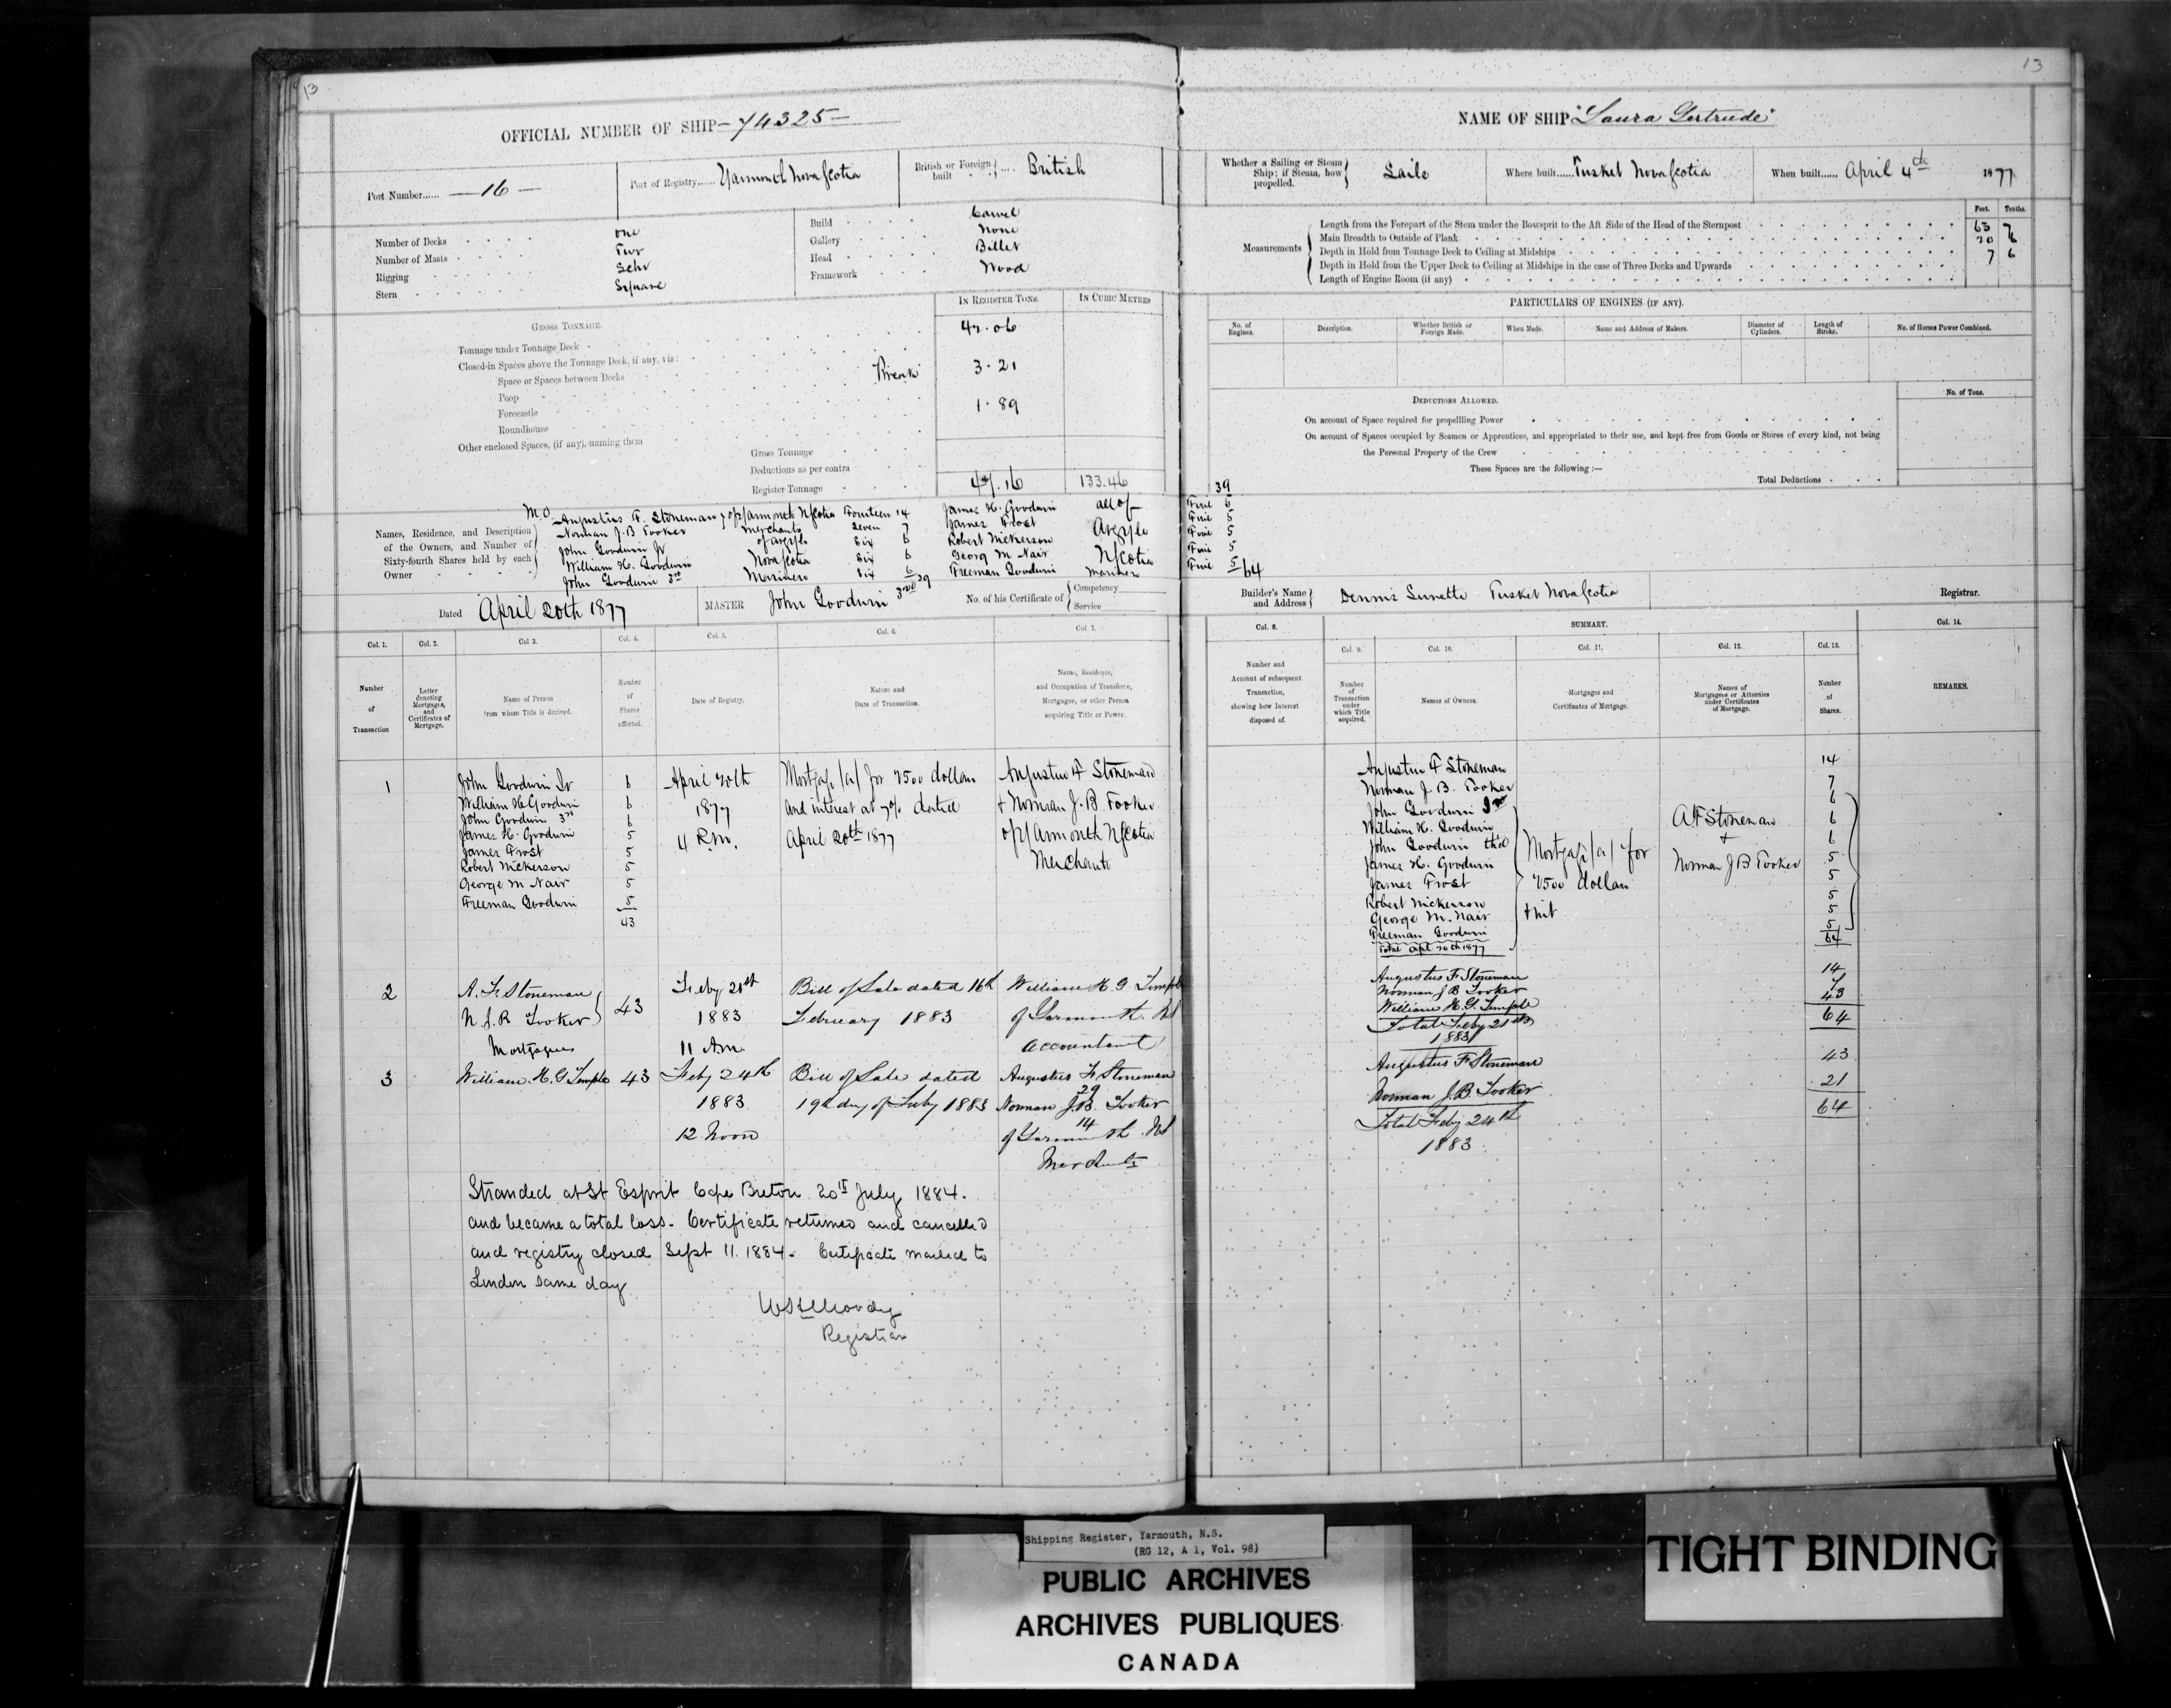 13
OFFICIAL NUMBER OF SHIP - 74325 -
Port Number...... - 16 -
Port of Registry...... Yarmouth Nova Scotia
British or Foreign built .... British
Number of Decks one
Number of Masts Two
Rigging Schr
Stern Square
Build Carvel
Gallery None
Head Billet
Framework Wood
IN REGISTER TONS.
IN CUBIC METRES
GROSS TONNAGE.
Tonnage under Tonnage Deck
Closed-in Spaces above the Tonnage Deck, if any, viz:
Space or Spaces between Decks Break 3.21
Poop
Forecastle 1.89
Roundhouse
Other enclosed Spaces, (if any), naming them
Gross Tonnage
Deductions as per contra
Register Tonnage 133.46
Names, Residence, and Description of the Owners, and Number of Sixty-fourth Shares held by each Owner
M.O. Augustus F. Stoneman of Yarmouth NScotia Fourteen 14
Norman J. B Tooker Merchants Seven 7
John Goodwin Jr of Argyle Six 6
William H. Goodwin Nova Scotia Six 6
John Goodwin 3rd Mariners Six 6
39
James H. Goodwin all of
James Frost Argyle
Robert Nickerson
George M Nair NScotia
Freeman Goodwin Mariners
Dated April 20th 1877
MASTER John Goodwin 3rd
No. of his Certificate of Competency
Service
Col. 1.
Col. 2.
Col. 3.
Col. 4.
Col. 5.
Col. 6.
Col. 7.
Number of Transaction
Letter denoting Mortgages, and Certificates of Mortgage.
Name of Person from whom Title is derived.
Number of Shares affected.
Date of Registry.
Nature and Date of Transaction.
Name, Residence, and Occupation of Transferee, Mortgagee, or other Person acquiring Title or Power.
1
John Goodwin Jr 6
William H Goodwin 6
John Goodwin 3rd 6
James H. Goodwin 5
James Frost 5
Robert Nickerson 5
George M Nair 5
Freeman Goodwin 5
43
April 20th
1877
4 P.M.
Mortgage (a) for 2500 dollars
and interest at 7% dated
April 20th 1877
Augustus F Stoneman
+ Norman J. B. Tooker
of Yarmouth NScotia
Merchants
2
A. F. Stoneman
N. J. B Tooker
Mortgagees
43
Feby 21st
1883
11 Am.
Bill of Sale dated 16th
February 1883
William H. G Temple
of Yarmouth. NS
Accountant
3
William. H. G Temple 43
Feby 24th
1883
12 Noon
Bill of Sale dated
19th day of Feby 1883
Augustus F Stoneman
29
Norman J.B. Tooker
14
of Yarmouth NS
Merchants
Stranded at St Esprit Cape Breton 20th July 1884.
and became a total loss. Certificate returned and cancelled
and registry closed Sept 11. 1884. Certificate mailed to
London same day
Registrar
13
NAME OF SHIP "Laura Gertrude"
Whether a Sailing or Steam Ship; if Steam, how propelled. Sails
Where built...... Tusket Nova Scotia
When built...... April 4th 1877
Feet. Tenths.
Measurements
Length from the Forepart of the Stem under the Bowsprit to the Aft Side of the Head of the Sternpost 63 7
Main Breadth to Outside of Plank 20 6
Depth in Hold from Tonnage Deck to Ceiling at Midships 7 6
Depth in Hold from the Upper Deck to Ceiling at Midships in the case of Three Decks and Upwards
Length of Engine Room (if any)
PARTICULARS OF ENGINES (IF ANY).
No. of Engines.
Description.
Whether British or Foreign Made.
When Made.
Name and Address of Makers.
Diameter of Cylinders.
Length of Stroke.
No. of Horses Power Combined.
DEDUCTIONS ALLOWED.
No. of Tons.
On account of Space required for propellling Power
On account of Spaces occupied by Seamen or Apprentices, and appropriated to their use, and kept free from Goods or Stores of every kind, not being
the Personal Property of the Crew
These Spaces are the following:—
Total Deductions
39
Five 5
Five 5
Five 5
Five 5
Five 5 64
Builder's Name and Address Tusket Nova Scotia
Registrar.
Col. 8.
SUMMARY.
Col. 14.
Col. 9.
Col. 10.
Col. 11.
Col. 12.
Col. 13.
Number and Account of subsequent Transaction, showing how Interest disposed of.
Number of Transaction under which Title acquired.
Names of Owners.
Mortgages and Certificates of Mortgage.
Names of Mortgagees or Attornies under Certificates of Mortgage.
Number of Shares.
REMARKS.
Augustus F Stoneman 14
Norman J. B. Tooker 7
John Goodwin Jnr 6
William H. Goodwin 6
John Goodwin third 6
James H. Goodwin 5
James Frost 5
Robert Nickerson 5
George M. Nair 5
Freeman Goodwin 5
Total Apl 20th 1877 64
Mortgage (a) for
2500 dollars
+ int
A. F Stoneman
+
Norman J B Tooker
Augustus F Stoneman 14
Norman J B Tooker 7
William H. G. Temple 43
Total Feby 21st 64
1883
Augustus F Stoneman 43
Norman J. B. Tooker 21
Total Feby 24th 64
1883
Shipping Register, Yarmouth, N.S.
(RG 12, A 1, Vol. 98)
PUBLIC ARCHIVES
ARCHIVES PUBLIQUES
CANADA
TIGHT BINDING